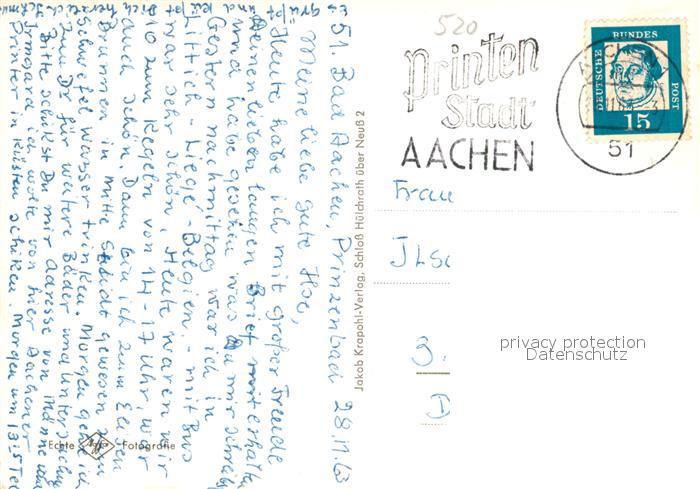 520
Printen
Stadt
AACHEN
DEUTSCHE BUNDES POST
15
51
Frau
Ilse
3.
D
privacy protection
Datenschutz
Jakob Krapohl-Verlag, Schloß Hülchrath über Neuß 2
Echte Fotografie
51. Bad Aachen, Prinzenbad 28.11.63
Meine liebe gute Ilse,
Heute habe ich mit großer Freude
Deinen lieben langen Brief erhalten
und habe gesehen was Du mir schreibst
Gestern nachmittag war ich in
Littich - Liège - Belgien. - mit Bus
war sehr schön, Heute waren wir
zum Kegeln von 14-17 Uhr, war
auch schön. Dann bin ich zum Elisen
Brunnen in mitte Stadt gewesen zum
Schwefelwasser trinken. Morgen gehe ich
zum Dr für weitere Bäder und Untersuchung
Bitte schickst Du mir Adresse von
Irmgard ich wollte von hier Aachener
Printen in Kästen schicken. Morgen um